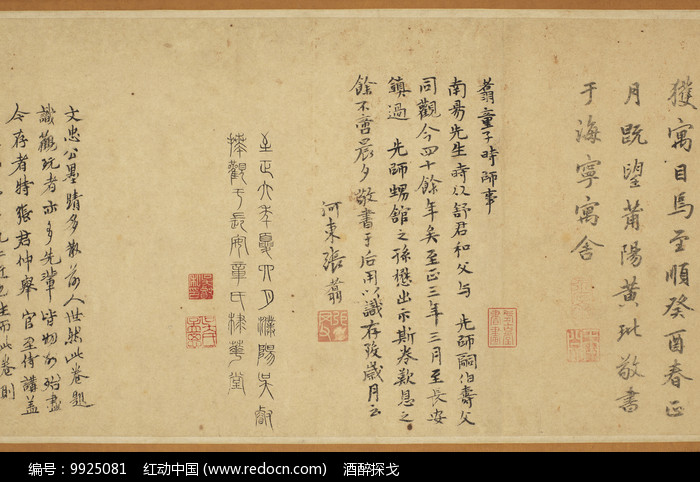 獲寓目焉至順癸酉春正
月既望莆陽黃玭敬書
于海寧寓舍
翥童子時師事
南昜先生時以舒君和父与 先師嗣伯壽父
同觀今四十餘年矣至正三年三月至長安
鎮過 先師甥館之孫懋出示斯卷歎息之
餘不啻晨夕敬書于后用以識存歿歲月云
河東張翥
至正六年夏六月濮陽吳叡
捧觀于長安章氏棣華堂
文忠公墨蹟多散落人世然此卷題
識觀玩者亦多先輩皆物
今存者特張君仲舉 官至侍講蓋
生而此卷則
编号：9925081 红动中国 (www.redocn.com) 酒醉探戈